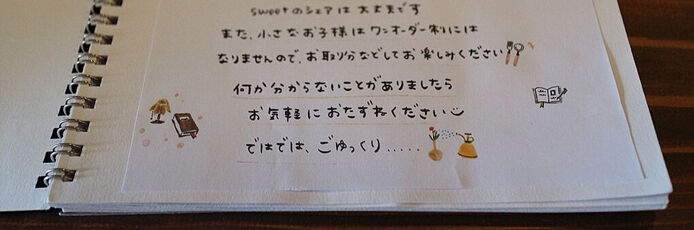 sweetのシェアは大丈夫です
また、小さなお子様はワンオーダー制には
なりませんので、お取り分などしてお楽しみください
何か分からないことがありましたら
お気軽におたずねください
ではでは、ごゆっくり.....